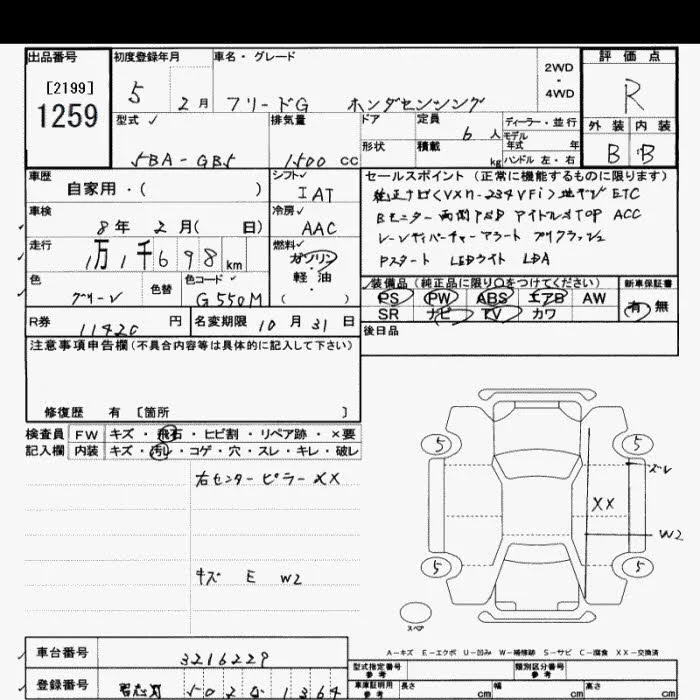 出品番号
[2199]
1259
初度登録年月
5 2月
車名・グレード
フリードG ホンダセンシング
2WD
・
4WD
評価点
R
外装 内装
B B
型式 ✓
5BA-GB5
排気量
1500 cc
ドア
形状
定員
6人
積載
kg
ディーラー・並行
モデル
年式 年
ハンドル 左・右
車歴
自家用・( )
シフト✓
IAT
車検
8年 2月( 日)
冷房✓
AAC
走行
1万1千698 km
燃料✓
ガソリン
軽油
( )
色
グリーン
色替
色コード✓
G550M
R券
11420 円
名変期限 10月31日
セールスポイント (正常に機能するものに限ります)
純正ナビ<VXM-234VFi>地デジ ETC
Bモニター 両側PSD アイドルSTOP ACC
レーンディパーチャーアラート プリクラッシュ
Pスタート LEDライト LDA
✓装備品(純正品に限り○をつけてください)
PS PW ABS エアB AW
SR ナビ TV カワ
新車保証書
有 無
後日品
注意事項申告欄(不具合内容等は具体的に記入して下さい)
修復歴 有 〔箇所 〕
検査員 FW キズ・飛石・ヒビ割・リペア跡・×要
記入欄 内装 キズ・汚レ・コゲ・穴・スレ・キレ・破レ
右センターピラーXX
キズ E W2
5
5
ズレ
XX
W2
5
5
スペア
A-キズ E-エクボ U-凹み W-補修跡 S-サビ C-腐食 XX-交換済
✓ 車台番号
3216229
登録番号
型式指定番号
参考
類別区分番号
参考
車庫証明用
参考
長さ cm 幅 cm 高さ cm